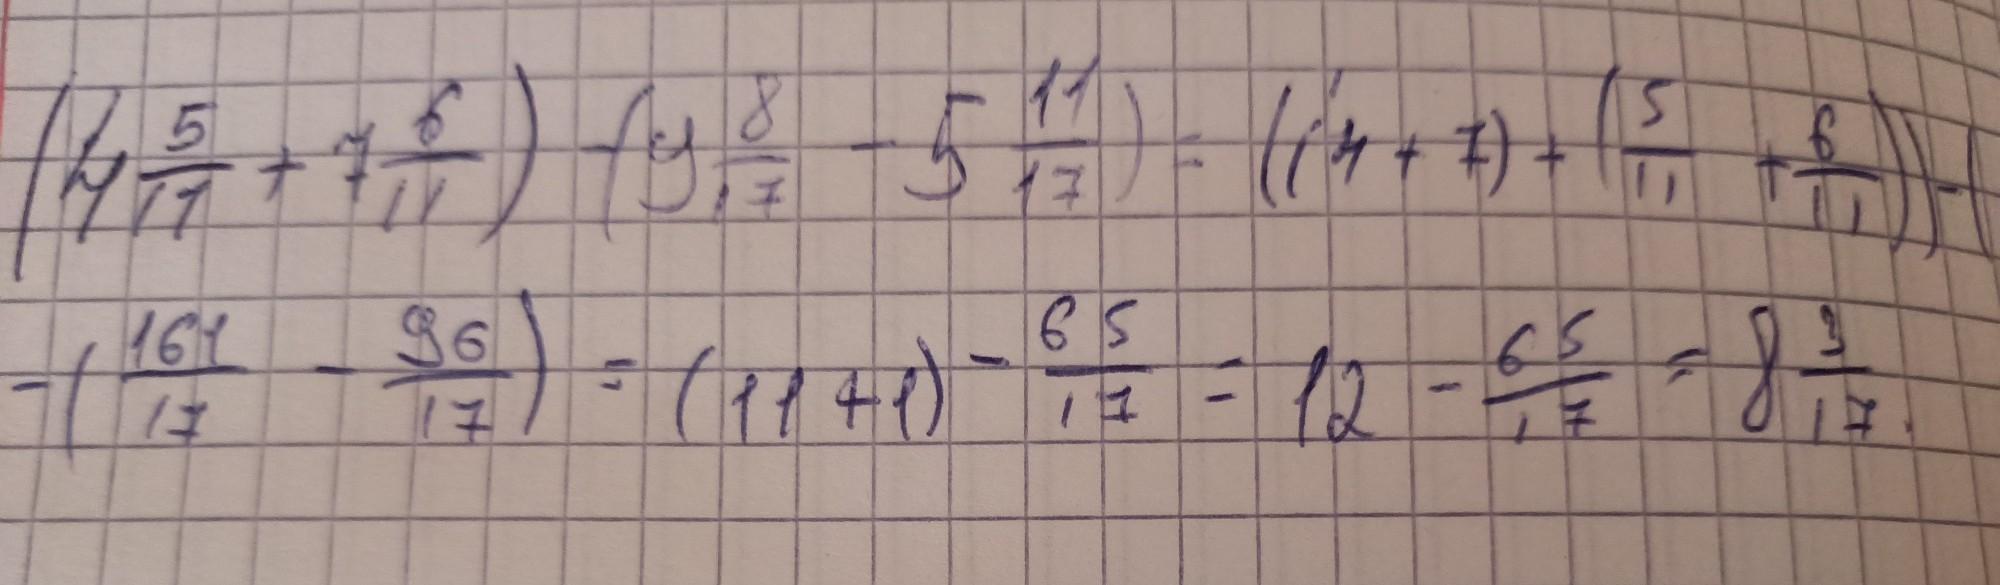 (4 5/11 + 7 6/11) - (9 8/17 - 5 11/17) = ((4 + 7) + (5/11 + 6/11)) - (
- (161/17 - 96/17) = (11 + 1) - 65/17 = 12 - 65/17 = 8 3/17.